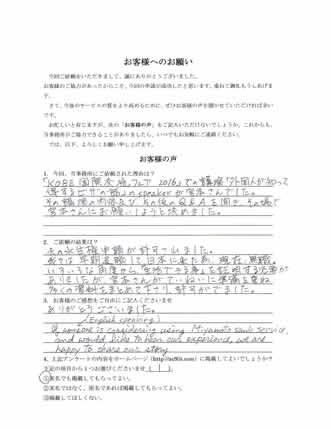 お客様へのお願い
今回ご依頼をいただきまして、誠にありがとうございました。
お客様のご協力があったからこそ、今回の申請が成功したと思います。重ねて御礼もうしあげます。
さて、今後のサービスの質をより高めるために、ぜひお客様の声を聞かせていただければ幸いです。
お忙しいと存じますが、次の「お客様の声」をご記入いただけないでしょうか。これからも、
当事務所がご協力できることがありましたら、いつでもお気軽にご連絡ください。
では、以下、よろしくお願い申し上げます。
お客様の声
1. 今回、当事務所にご依頼された理由は?
「KOBE国際交流フェア2016」での講座「外国人が知って
得するビザの話」のspeakerが宮本さんでした。
その講座の内容及び、その後のQ&Aを聞き、その場で
宮本さんにお願いしようと決めました。
2. ご依頼の結果は?
夫の永住権申請が許可でいました。
夫は早期退職して日本に来た為、現在、無職。
いろいろな角度から、生活できる事を証明する必要が
ありましたが、宮本さんがていねいに準備を重ね
多くの資料をまとめて下さり、許可がでました。
3. お客様のご感想をご自由にご記入くださいませ
ありがとうございました。
(English speaking)
If someone is considering using Miyamoto san's service,
and would like to hear our experience, we are
happy to share our story.
4. 上記アンケートの内容をホームページ (http://) に掲載してよいでしょうか?
下記の項目から1つお選びくださいませ ( )。
①実名でも掲載してもらってよい。
②実名ではなく、匿名であれば掲載してもらってよい。
③掲載してほしくない。